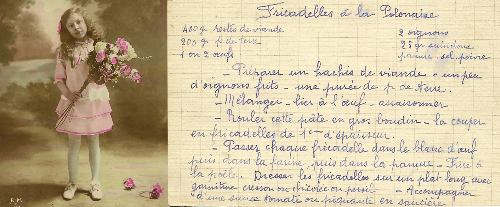 Fricadelles à la Polonaise
400 gr restes de viande
2 oignons
200 gr p. de terre
25 gr saindoux
1 ou 2 œufs
panure sel poivre
- Préparer un hachis de viande - un peu
d'oignons frits - une purée de p. de terre.
- Mélanger - lier à l'œuf - assaisonner
- Rouler cette pâte en gros boudin - la couper
en fricadelles de 1cm d'épaisseur.
- Passez chaque fricadelle dans le blanc d'œuf
puis dans la farine, puis dans la panure - Frire à
la poêle. Dresser les fricadelles sur un plat long avec
garniture cresson ou chicorée ou persil - Accompagner
d'une sauce tomate ou piquante en saucière
R.M.